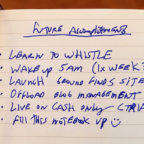 FUTURE ACCOMPLISHMENTS
• LEARN TO WHISTLE
• WAKE UP 5AM (1x WEEK?
• LAUNCH GROUND FINDS SITE
• OFFLOAD BLOG MANAGEMENT
• LIVE ON CASH ONLY (TRIA
• FILL THIS NOTEBOOK UP ☺